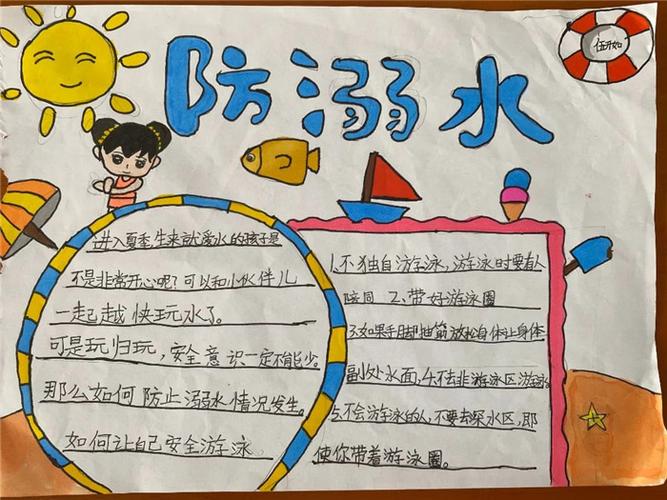 防溺水
伍开如
进入夏季,生来就爱水的孩子是
不是非常开心呢?可以和小伙伴儿
一起起越快玩水了。
可是玩归玩,安全意识一定不能少。
那么如何防止溺水情况发生。
如何让自己安全游泳
1.不独自游泳,游泳时要有人
陪同 2、带好游泳圈
3.如果手脚抽筋放松身体让身体
副处水面,4.不去非游泳区游泳。
5.不会游泳的人,不要去深水区,即
使你带着游泳圈。